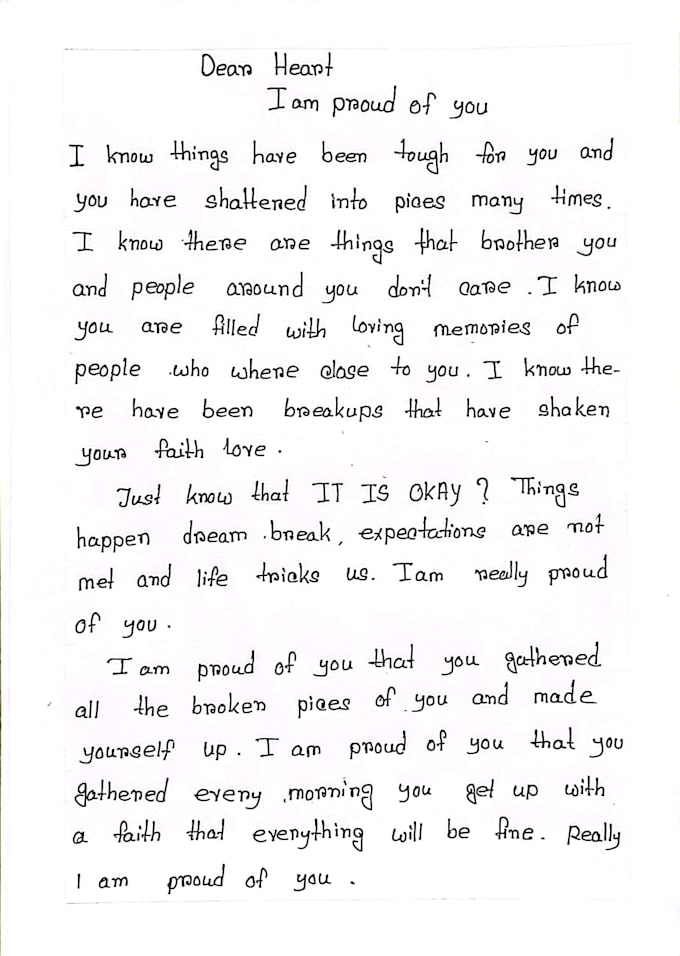 Dear Heart
I am proud of you
I know things have been tough for you and
you have shattered into pices many times.
I know there are things that brother you
and people around you don't care. I know
you are filled with loving memories of
people who where close to you. I know the-
re have been breakups that have shaken
your faith love.
Just know that IT IS OKAY? Things
happen dream break, expectations are not
met and life tricks us. I am really proud
of you.
I am proud of you that you gathered
all the broken pices of you and made
yourself up. I am proud of you that you
gathered every morning you get up with
a faith that everything will be fine. Really
I am proud of you.